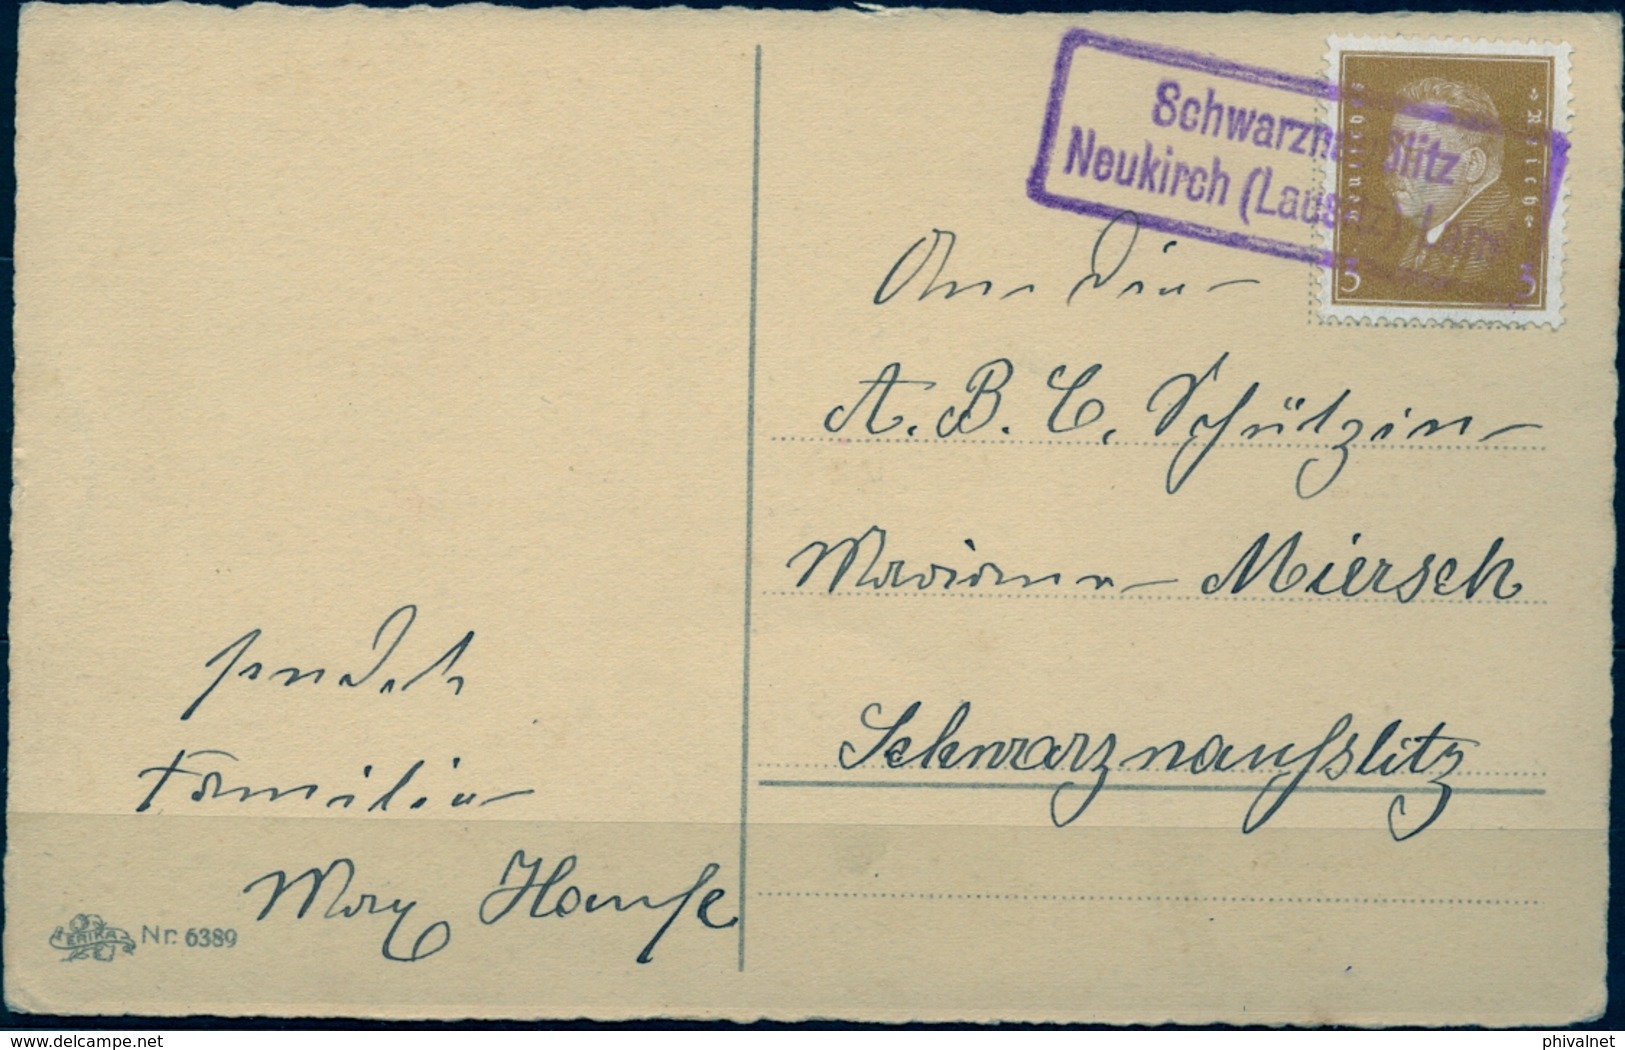 Schwarznaußlitz
Neukirch (Lausitz) Land
Deutsches Reich
3 3
An die
A. B. C. Schützin
Mariana Miersch
Schwarznaußlitz
sendet
Familie
Max Hanfe
ERIKA Nr. 6389
delcampe.net
phivalnet